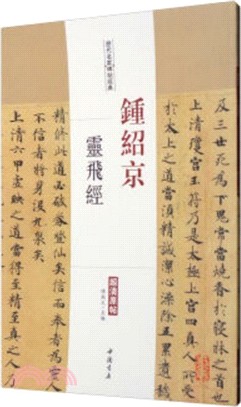 歷代名家碑帖經典
及三世死為下鬼常當燒香於寢牀之首也
上清瓊宮玉符乃是太極上宮四真人所受
於太上之道當須精誠潔心澡除五累遺穢
鍾紹京
靈飛經
超清原帖
中國書店
精修此道必破券登仙矣信而奉者為
不信者將身沒九泉矣
上清六甲虛映之道當得至精至真之人乃